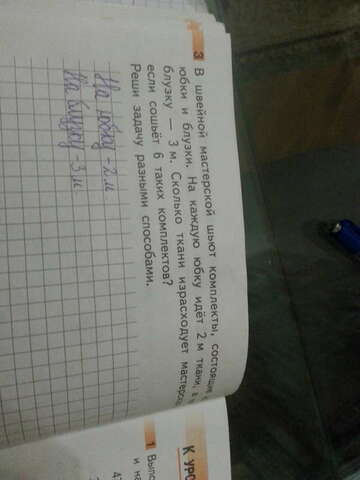 3 В швейной мастерской шьют комплекты, состоящие
юбки и блузки. На каждую юбку идёт 2 м ткани,
блузку — 3 м. Сколько ткани израсходует
если сошьёт 6 таких комплектов?
Реши задачу разными способами.
На юбку - 2 м
На блузку - 3 м
К УРО
1 Выпо
и на